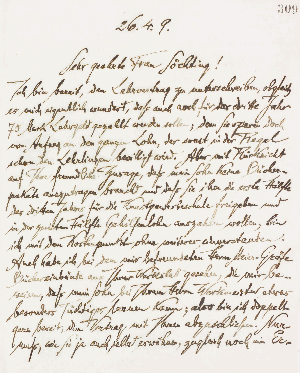 309
26. 4. 9.
Sehr geehrte Frau Föchting!
Ich bin bereit, den Lehrvertrag zu unterschreiben, obgleich
es mich eigentlich wundert, daß auch noch für das dritte Jahr
75 Mark Lehrgeld gezahlt werden sollen, denn sonst
von Anfang an den ganzen Lohn, der sonst in der Regel
schon den Lehrlingen bewilligt wird. Aber mit Rücksicht
auf Ihre freundliche Zusage, daß mein Sohn keine Bücher-
pakete auszutragen braucht und daß Sie ihm die erste Hälfte
des dritten Jahres für die Kunstgewerbeschule freigeben und
in der zweiten Hälfte Gehilfenlohn zahlen wollen, bin
ich mit dem Vertrag ohne weiteres einverstanden.
Auch habe ich bei dem mir befreundeten Herrn
Büchereinbände aus Ihrer Werkstatt gesehen, die mir be-
weisen, daß mein Sohn bei Ihnen etwas
besonders Tüchtiges lernen kann; also bin ich doppelt
gern bereit, den Vertrag mit Ihnen abzuschließen. Nur
muß, wie Sie ja auch selbst erwähnen, zugleich noch ein